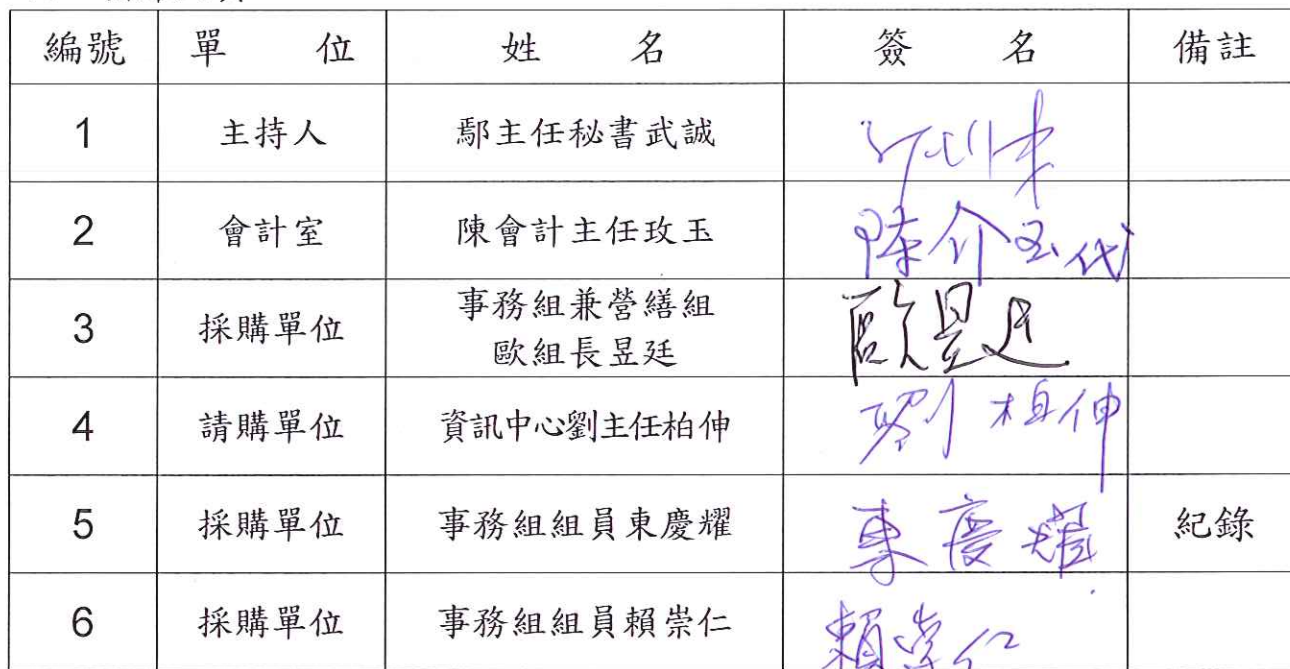 編號 單 位 姓 名 簽 名 備註
1 主持人 鄢主任秘書武誠
2 會計室 陳會計主任玫玉 陳介玉代
3 採購單位 事務組兼營繕組
歐組長昱廷 歐昱廷
4 請購單位 資訊中心劉主任柏伸 劉柏伸
5 採購單位 事務組組員東慶耀 東慶耀 紀錄
6 採購單位 事務組組員賴崇仁 賴崇仁